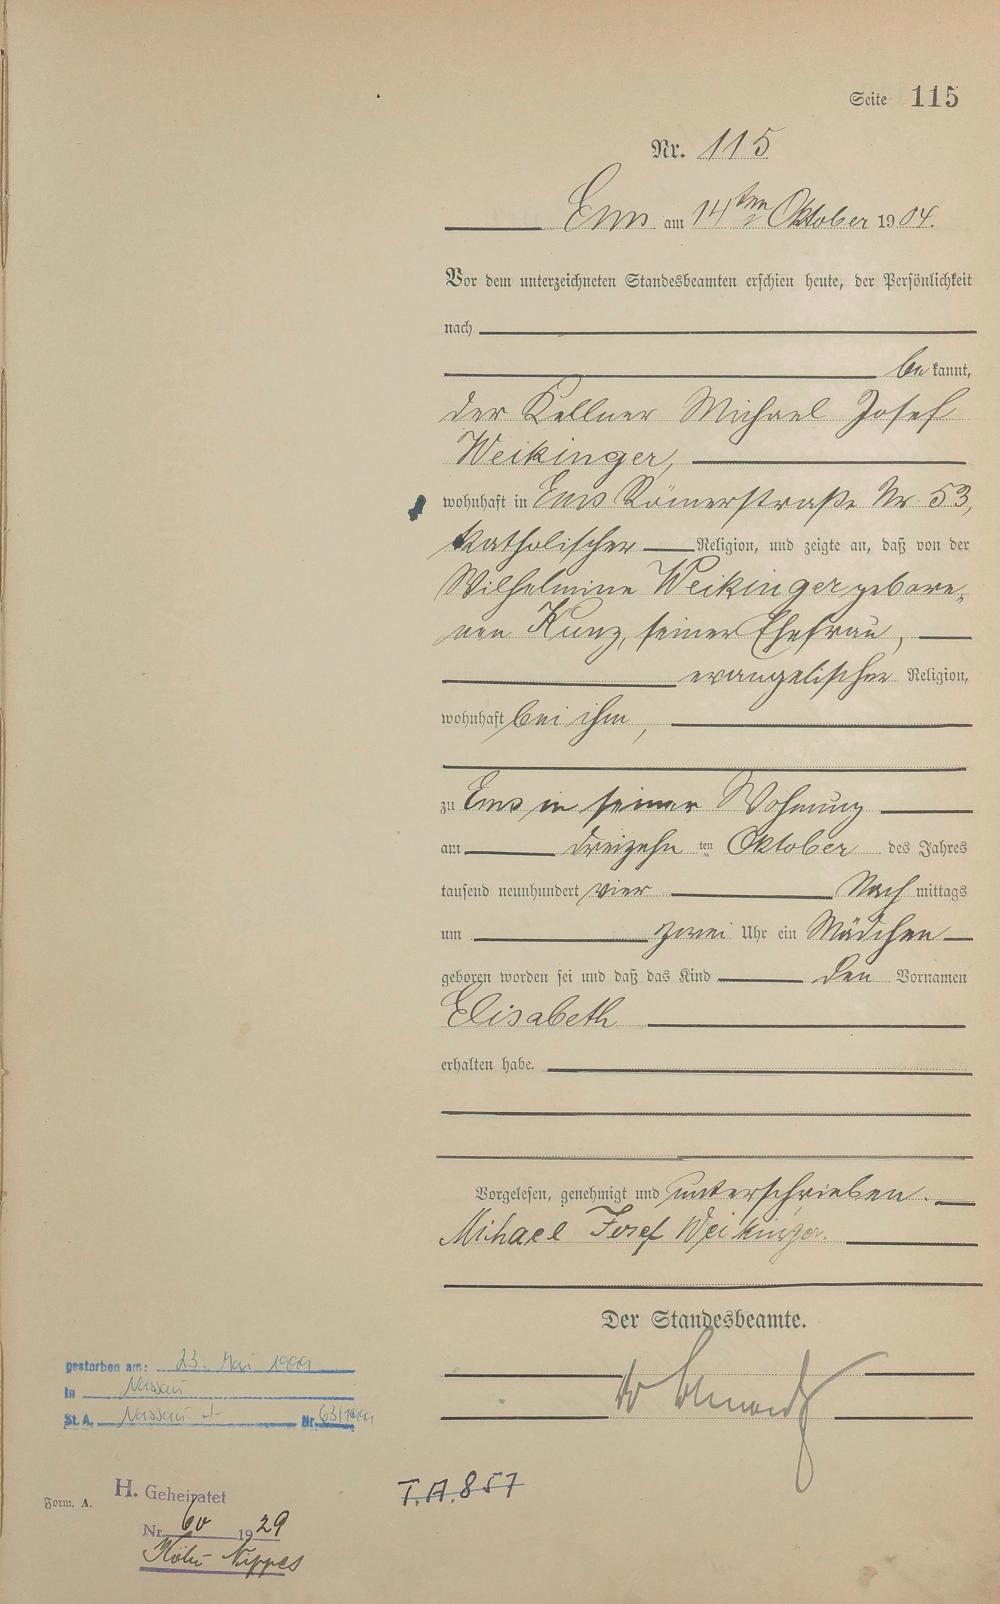 Seite 115
Nr. 115
Ems am 14ten Oktober 1904.
Vor dem unterzeichneten Standesbeamten erschien heute, der Persönlichkeit
nach
bekannt,
der Kellner Michael Josef
Weikinger,
wohnhaft in Ems Römerstraße Nr. 53,
katholischer Religion, und zeigte an, daß von der
Wilhelmine Weikinger gebore-
nen Kunz, seiner Ehefrau,
evangelischer Religion,
wohnhaft bei ihm,
zu Ems in seiner Wohnung
am dreizehnten Oktober des Jahres
tausend neunhundert vier Nachmittags
um zwei Uhr ein Mädchen
geboren worden sei und daß das Kind den Vornamen
Elisabeth
erhalten habe.
Vorgelesen, genehmigt und unterschrieben.
Michael Josef Weikinger.
Der Standesbeamte.
gestorben am: 23. Mai 1999
in Nassau
St. A. Nassau Nr. 63/1999
H. Geheiratet
Form. A.
T.A. 857
Nr. 60 1929
Köln-Nippes